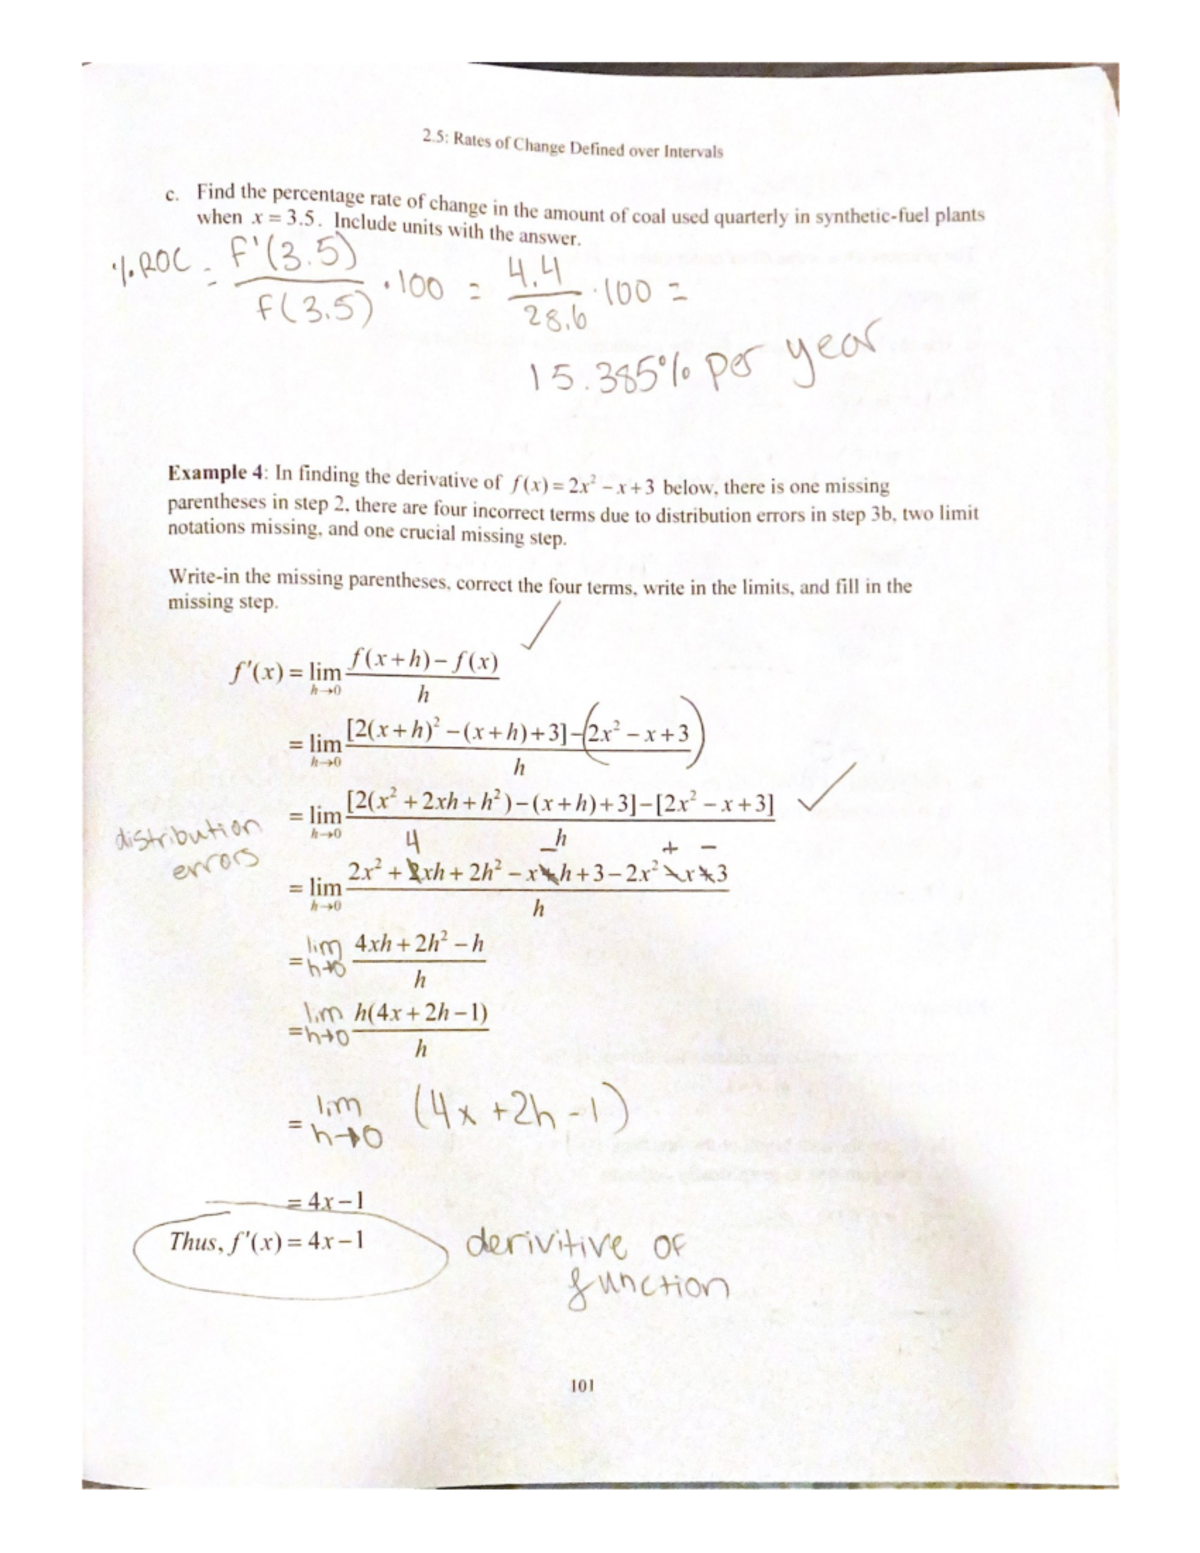 2.5: Rates of Change Defined over Intervals
c. Find the percentage rate of change in the amount of coal used quarterly in synthetic-fuel plants
when x = 3.5. Include units with the answer.
%ROC = f'(3.5) / f(3.5) · 100 = 4.4 / 28.6 · 100 =
15.385% per year
Example 4: In finding the derivative of f(x) = 2x² − x + 3 below, there is one missing
parentheses in step 2, there are four incorrect terms due to distribution errors in step 3b, two limit
notations missing, and one crucial missing step.
Write-in the missing parentheses, correct the four terms, write in the limits, and fill in the
missing step.
f'(x) = lim h→0 f(x+h) − f(x) / h
= lim h→0 [2(x+h)² − (x+h) + 3] − (2x² − x + 3) / h
= lim h→0 [2(x² + 2xh + h²) − (x+h) + 3] − [2x² − x + 3] / h
distribution
errors
4 − + −
= lim h→0 2x² + 2xh + 2h² − x + h + 3 − 2x² − x + 3 / h
= lim h→0 4xh + 2h² − h / h
= lim h→0 h(4x + 2h − 1) / h
= lim h→0 (4x + 2h − 1)
= 4x − 1
Thus, f'(x) = 4x − 1
derivitive of
function
101